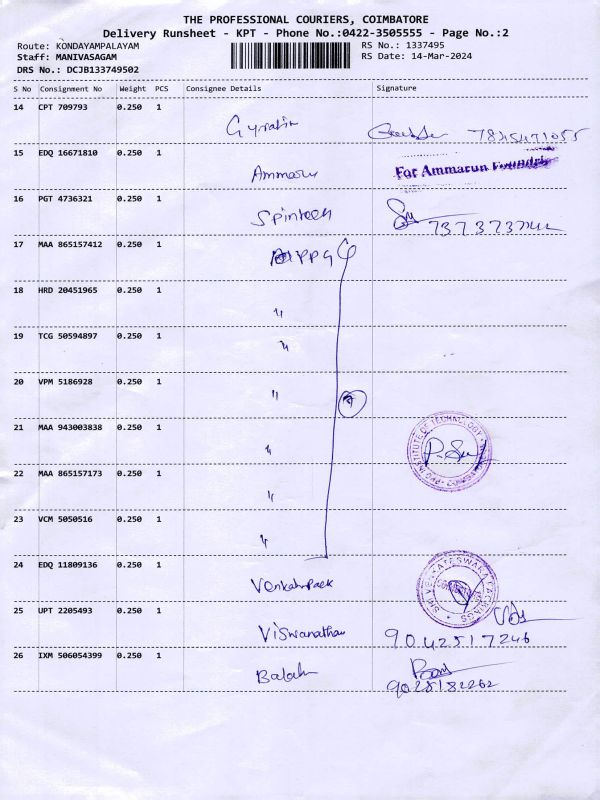 THE PROFESSIONAL COURIERS, COIMBATORE
Delivery Runsheet - KPT - Phone No.:0422-3505555 - Page No.:2
Route: KONDAYAMPALAYAM RS No.: 1337495
Staff: MANIVASAGAM RS Date: 14-Mar-2024
DRS No.: DCJB133749502
S No Consignment No Weight PCS Consignee Details Signature
14 CPT 709793 0.250 1
15 EDQ 16671810 0.250 1 For Ammarun
16 PGT 4736321 0.250 1 Spintech
17 MAA 865157412 0.250 1
18 HRD 20451965 0.250 1 "
19 TCG 50594897 0.250 1 "
20 VPM 5186928 0.250 1 " 7
21 MAA 943003838 0.250 1 " INSTITUTE OF TECHNOLOGY
22 MAA 865157173 0.250 1 "
23 VCM 5050516 0.250 1 "
24 EDQ 11809136 0.250 1 Venkatnpack SHI VENKATESWARA PACKINGS
25 UPT 2205493 0.250 1 Viswanathan 9042517246
26 IXM 506054399 0.250 1 9025182262